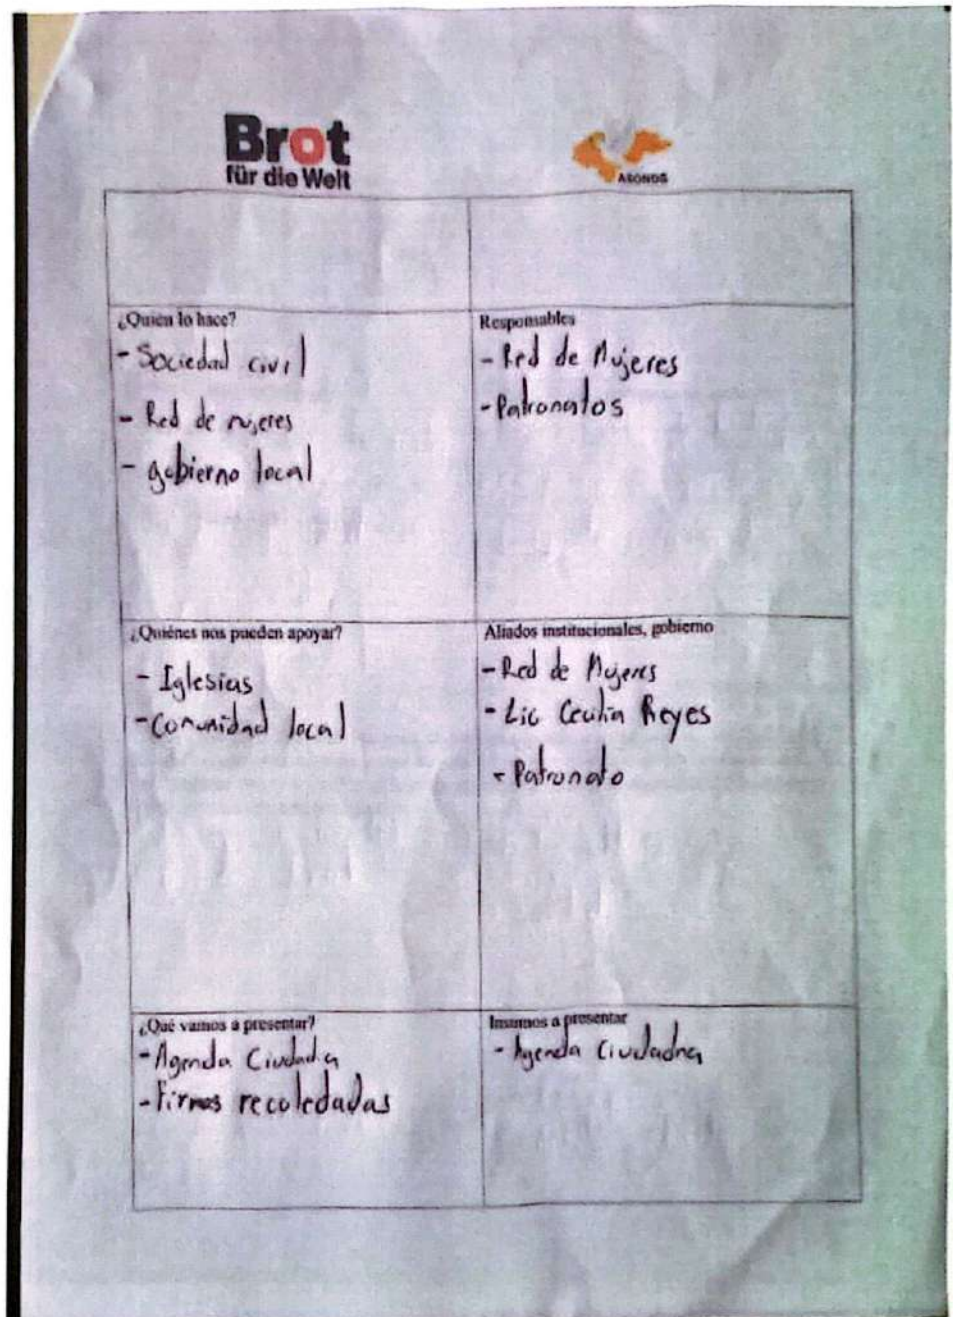 Brot
für die Welt
ASONOG
¿Quién lo hace?
- Sociedad civil
- Red de mujeres
- gobierno local
Responsables
- Red de Mujeres
- Patronatos
¿Quiénes nos pueden apoyar?
- Iglesias
- Comunidad local
Aliados institucionales, gobierno
- Red de Mujeres
- Lic Cecilia Reyes
- Patronato
¿Qué vamos a presentar?
- Agenda Ciudada
- Firmas recoledadas
Insumos a presentar
- Agenda Ciudadna